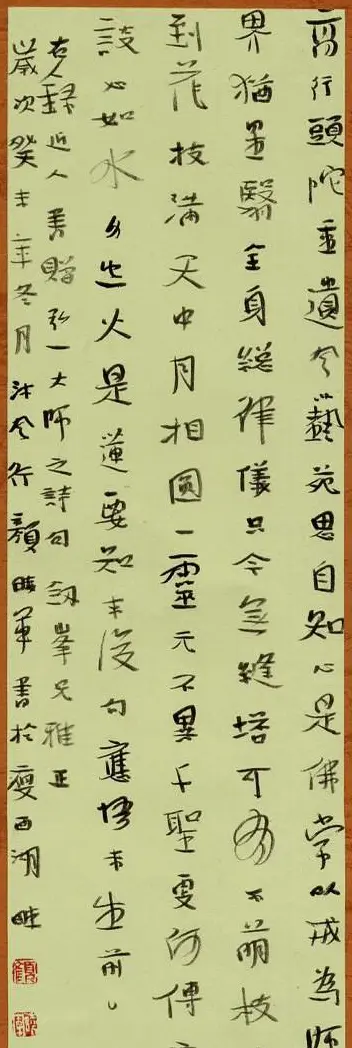 高行頭陀重遺風藝苑思自知心是佛常以戒為師
界猶星翳全身總律儀只今無縫塔可有不萌枝
到花枝滿天中月相圓一靈元不異千聖更何傳
談心如水身空火是蓮要知末後句應悟未生前
右錄近人書贈弘一大師之詩句劍峯兄雅正
歲次癸未年冬月沐風行顏書於瘦西湖畔